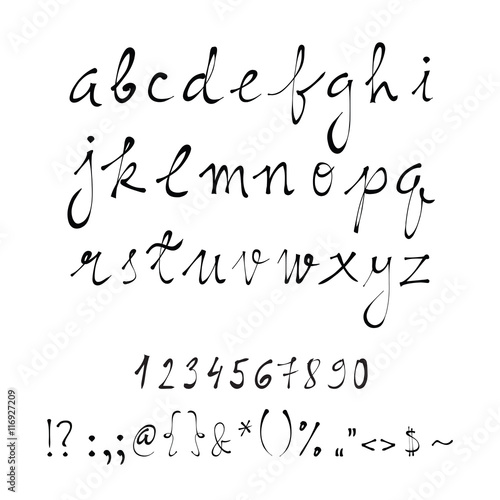 abcdefghi
jklmnopq
rstuvwxyz
1234567890
!?:,;@{}&*()%„”<>$~
Adobe Stock | #116927209